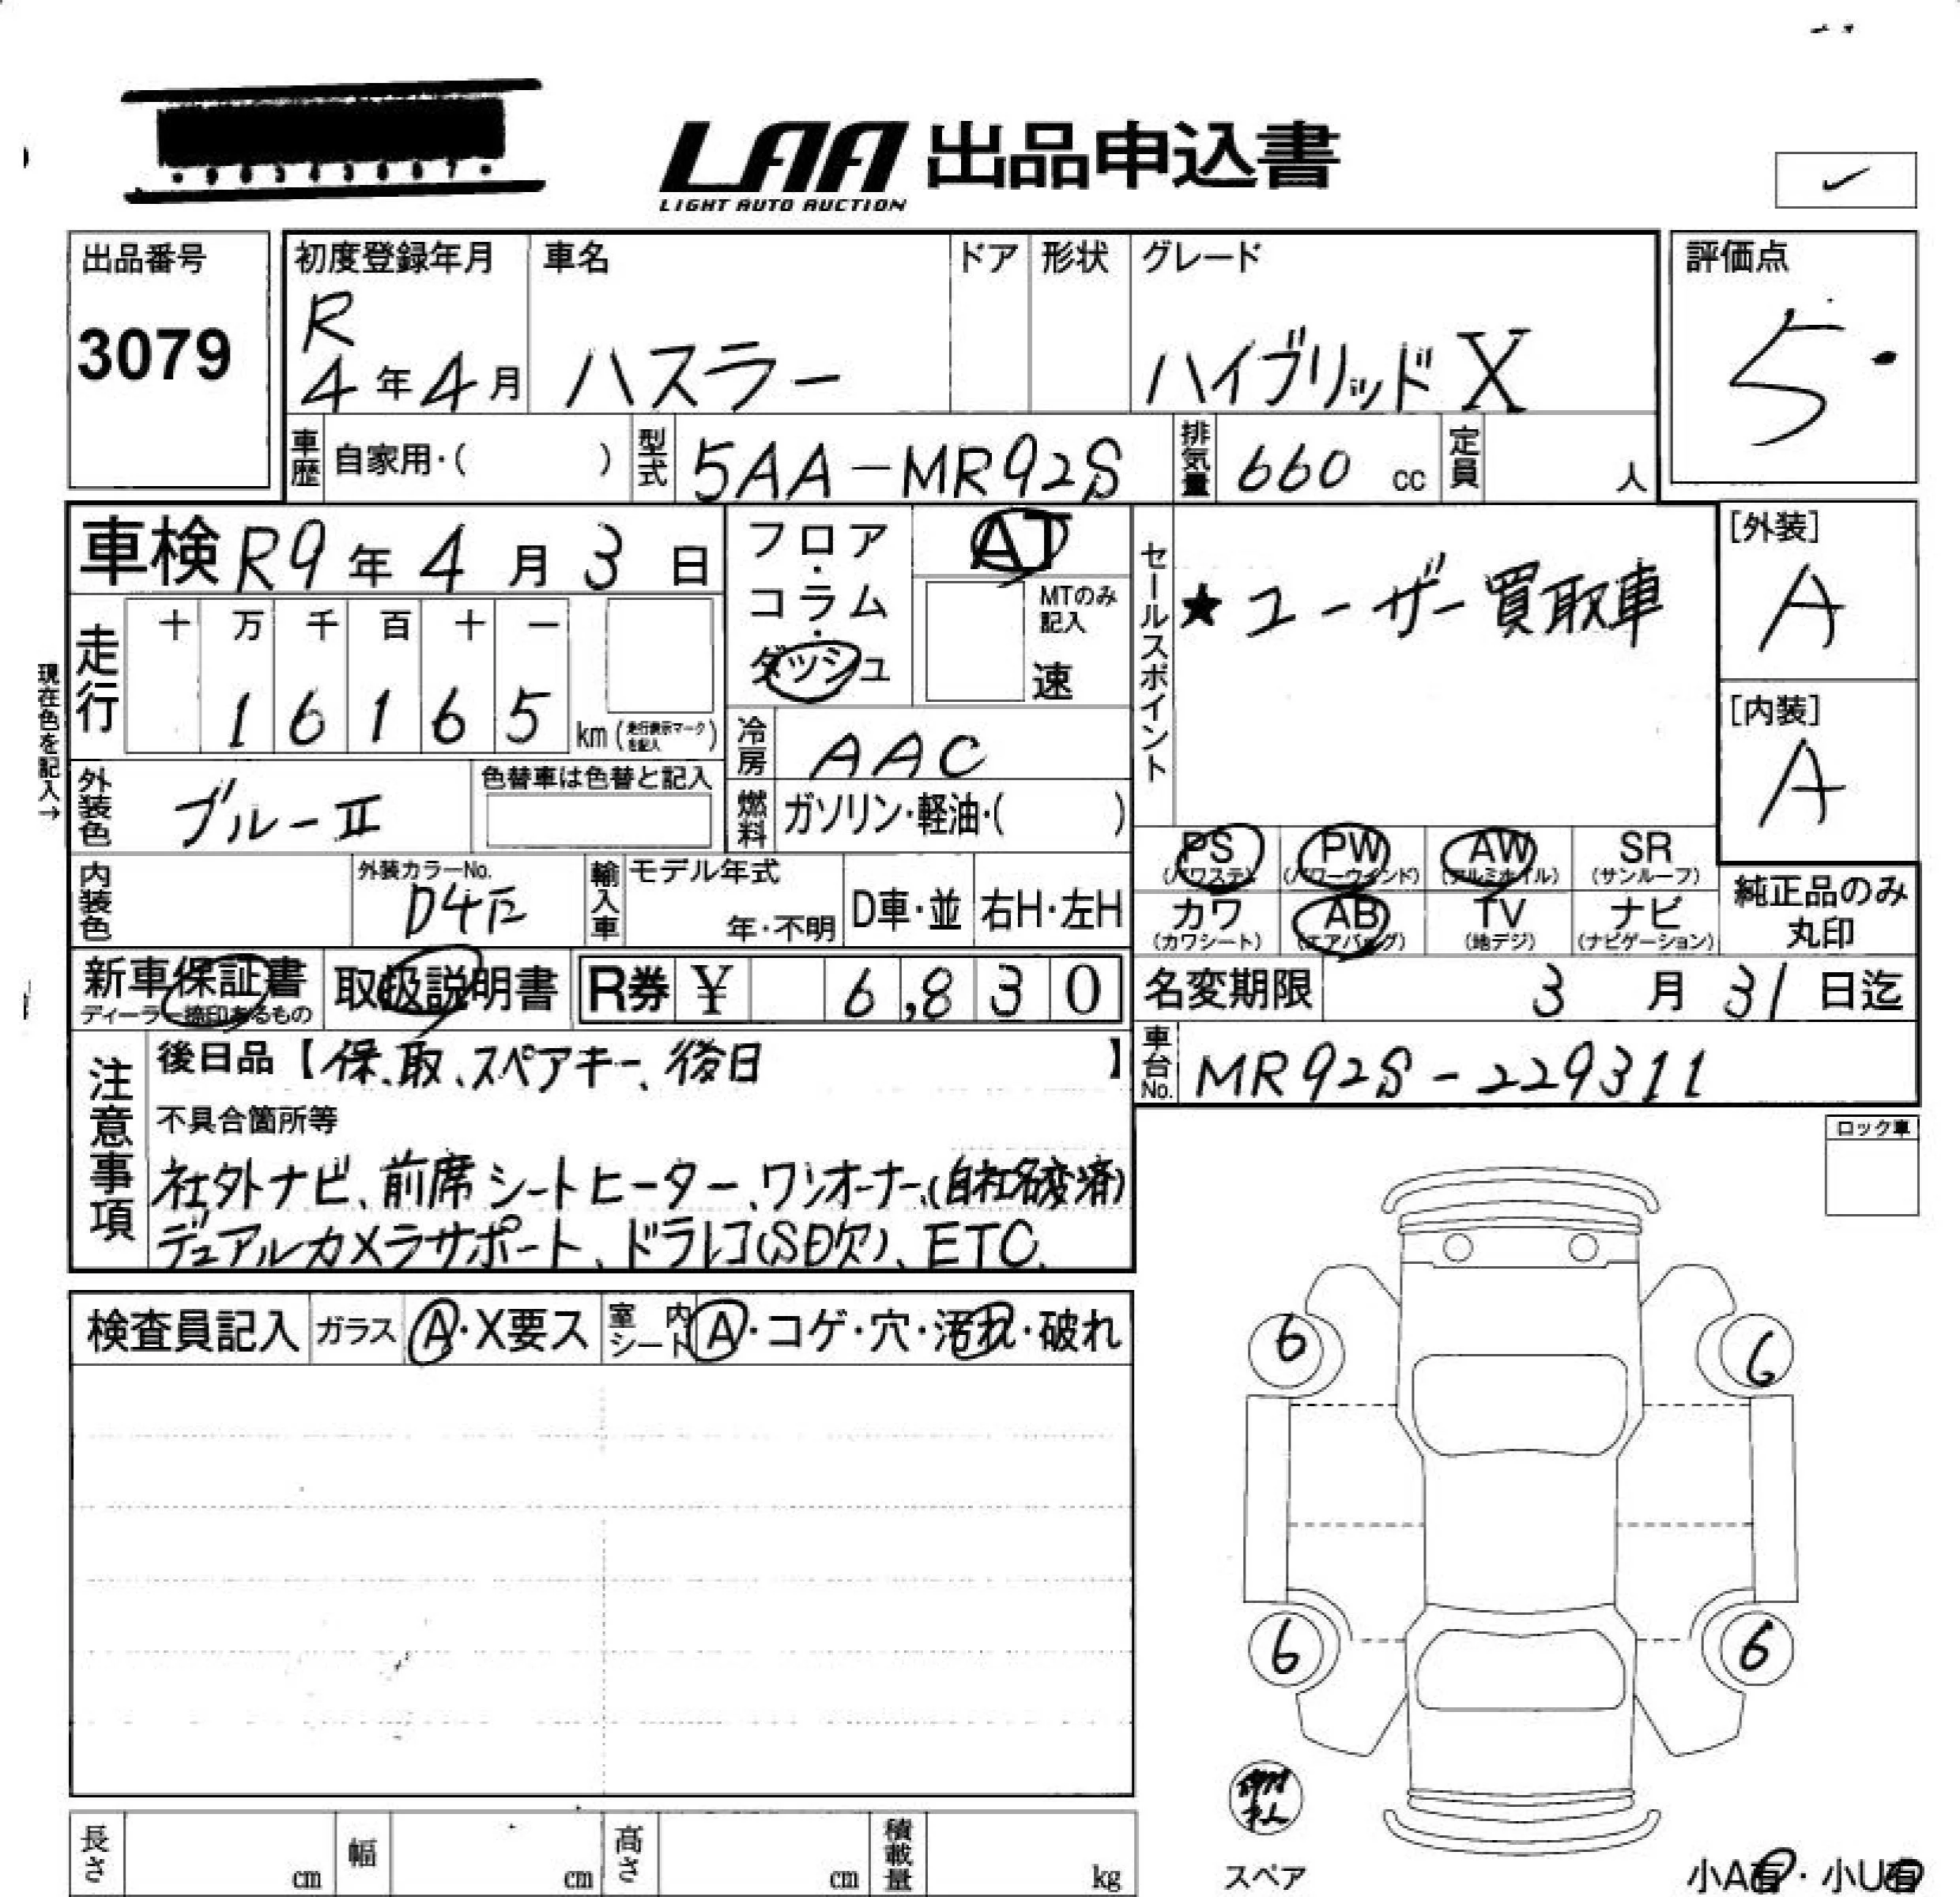 LAA 出品申込書
LIGHT AUTO AUCTION
出品番号
3079
初度登録年月
R
4年4月
車名
ハスラー
ドア
形状
グレード
ハイブリッドX
評価点
5
車歴 自家用・( )
型式 5AA-MR92S
排気量 660 cc
定員 人
車検 R9年4月3日
フロア・コラム・ダッシュ
AT
MTのみ記入
速
セールスポイント
★ユーザー買取車
[外装]
A
[内装]
A
現在色を記入→
走行
十 万 千 百 十 一
1 6 1 6 5 km (走行表示マークを記入)
冷房 AAC
外装色 ブルーII
色替車は色替と記入
燃料 ガソリン・軽油・( )
PS (パワステ)
PW (パワーウィンド)
AW (アルミホイル)
SR (サンルーフ)
カワ (カワシート)
AB (エアバッグ)
TV (地デジ)
ナビ (ナビゲーション)
純正品のみ
丸印
内装色
外装カラーNo.
輸入車
モデル年式
年・不明
D車・並
右H・左H
新車保証書
ディーラー捺印あるもの
取扱説明書
R券 ¥ 6,830
名変期限 3月31日迄
車台No. MR92S-229311
注意事項
後日品【保、取、スペアキー、後日】
不具合箇所等
社外ナビ、前席シートヒーター、ワンオーナー、(自社名変済)
デュアルカメラサポート、ドラレコ(SD欠)、ETC、
ロック車
検査員記入
ガラス A・X要ス
室内シート A・コゲ・穴・汚れ・破れ
6
6
6
6
スペア
長さ cm
幅 cm
高さ cm
積載量 kg
小A有・小U有